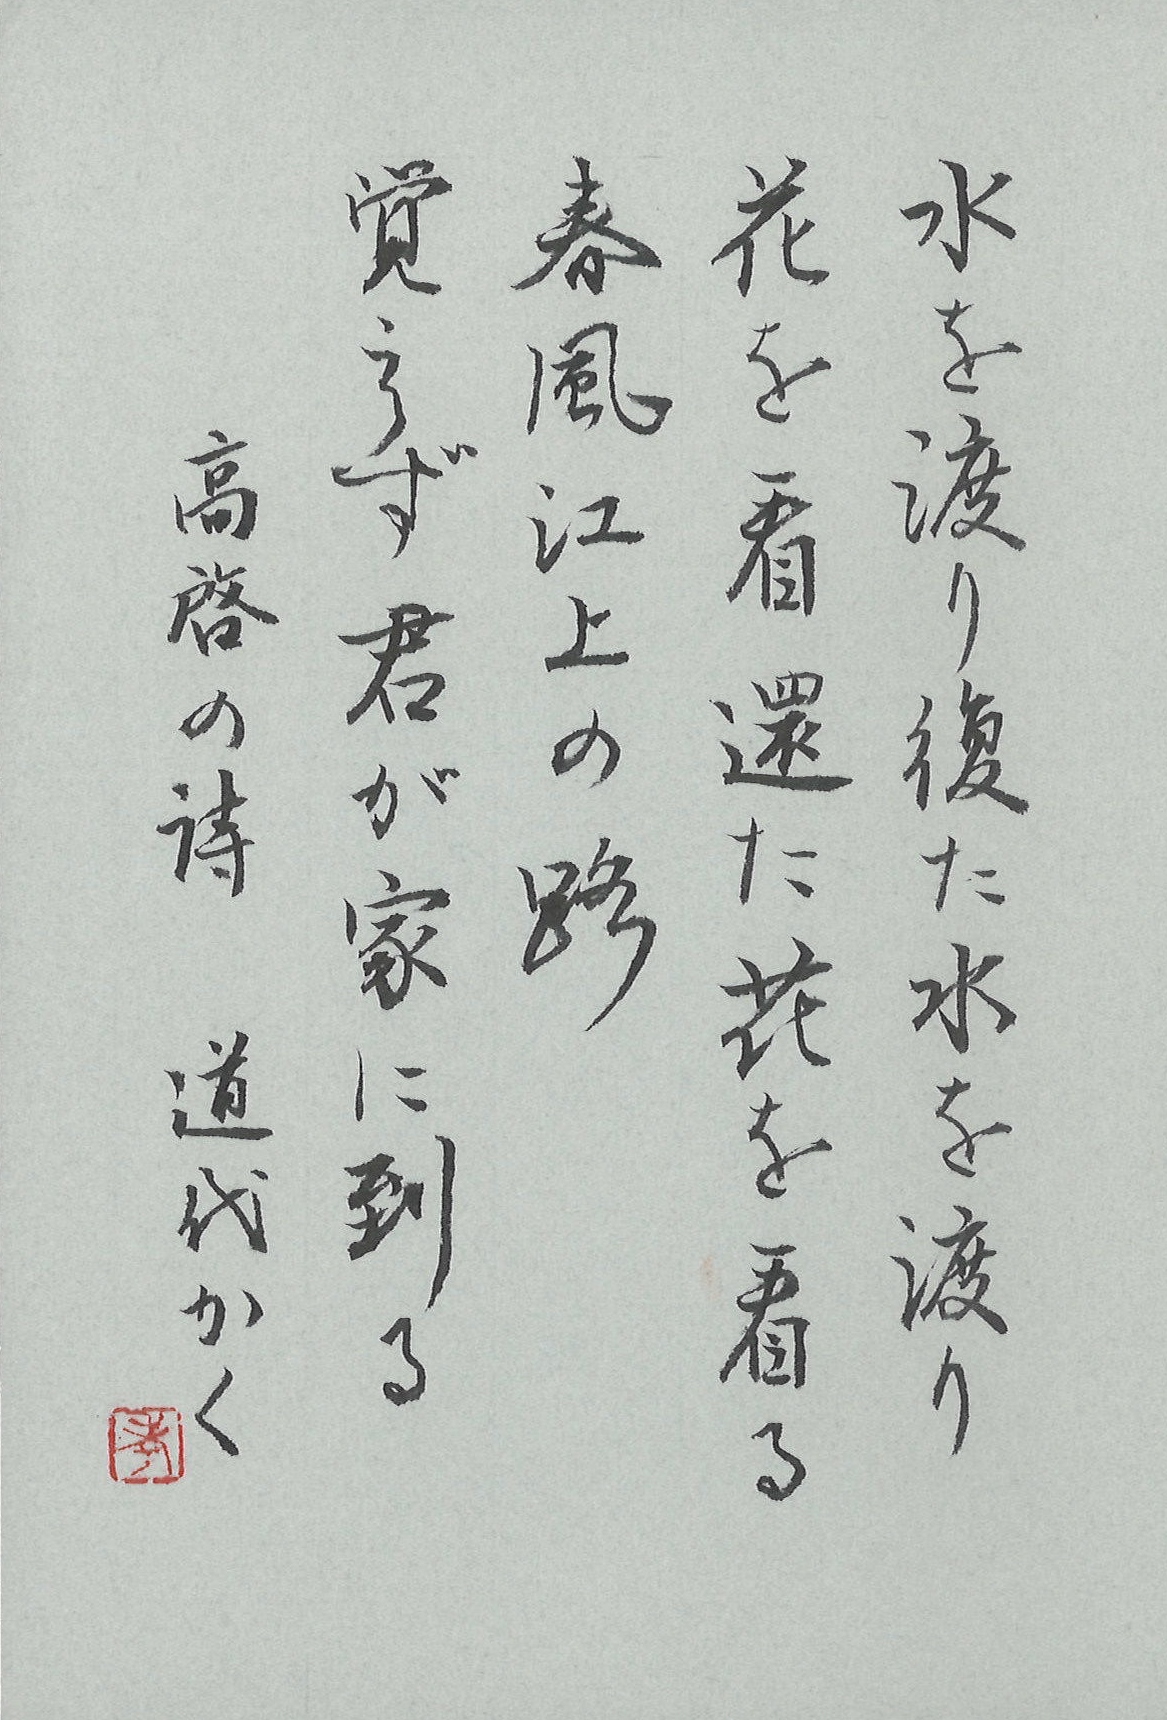 水を渡り復た水を渡り
花を看還た花を看る
春風江上の路
覚えず君が家に到る
高啓の詩 道代かく